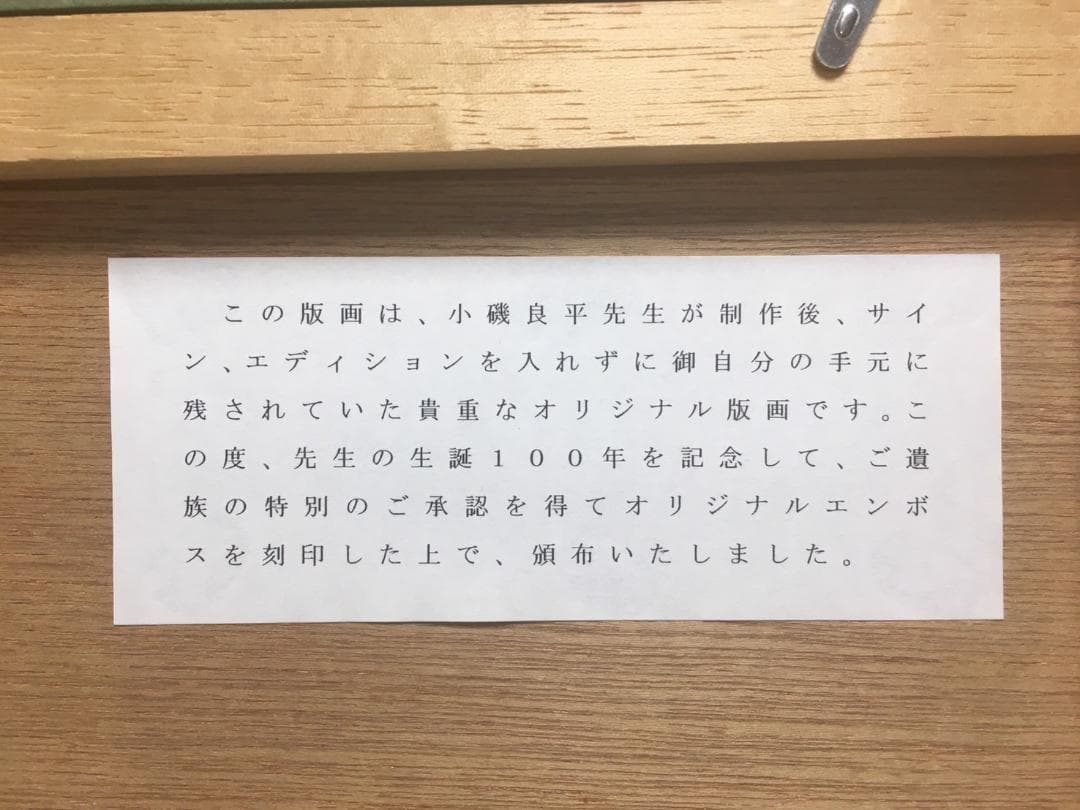 この版画は、小磯良平先生が制作後、サイ
ン、エディションを入れずに御自分の手元に
残されていた貴重なオリジナル版画です。こ
の度、先生の生誕１００年を記念して、ご遺
族の特別のご承認を得てオリジナルエンボ
スを刻印した上で、頒布いたしました。